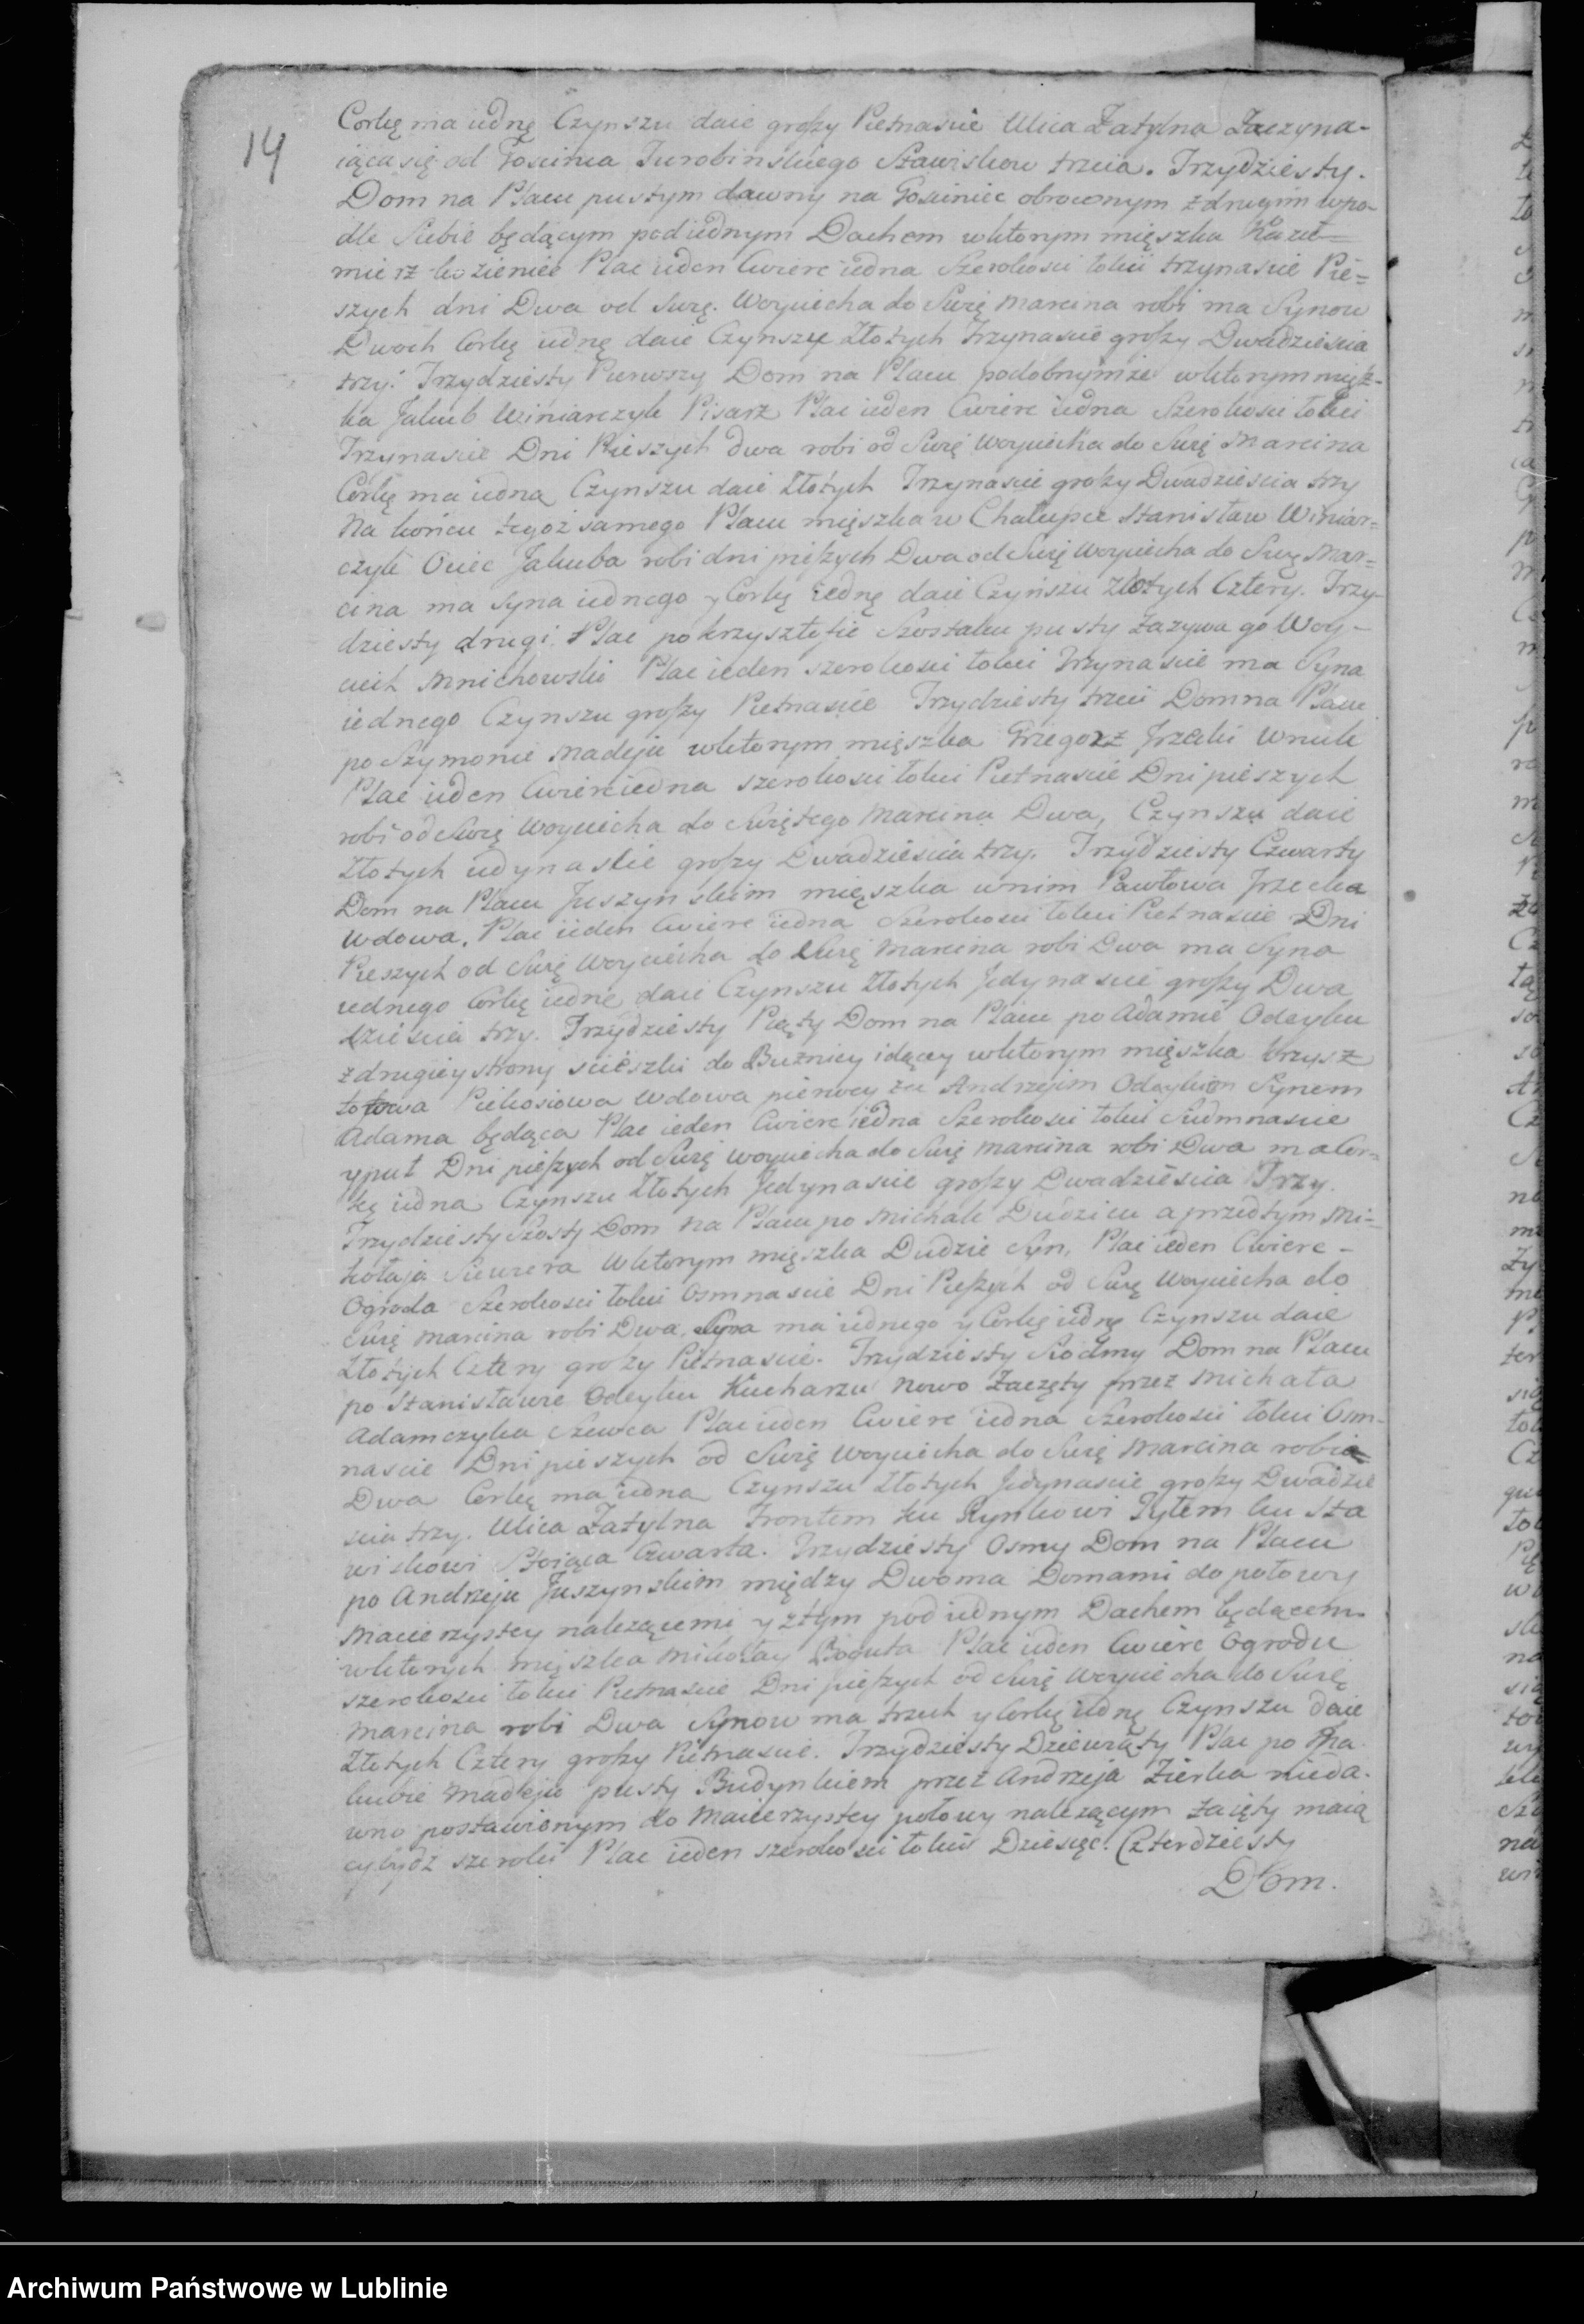 14
Corkę ma iednę Czynszu daie groszy Pietnascie Ulica Zatylna Zaczyna-
iąca się od Goscinca Turobinskiego Stawiskow trzcia. Trzydziesty.
Dom na Placu pustym dawny na Gosciniec obroconym z drugim wpo-
dle Siebie będącym pod iednym Dachem wktorym mięszka Kazie=
mierz Plac ieden Cwierc iedna Szerokosci tokci trzynascie Pie=
szych dni Dwa od Swię. Woyciecha do Swię Marcina robi ma Synow
Dwoch Corkę iednę daie Czynszu Złotych Trzynascie groszy Dwadziescia
trzy. Trzydziesty Pierwszy Dom na Placu podobnymze wktorym mięsz-
ka Jakub Winiarczyk Pisarz Plac ieden Cwierc iedna Szerokosci tokci
Trzynascie Dni Pieszych dwa robi od Swię Woyciecha do Swię Marcina
Corkę ma iedna Czynszu daie Złotych Trzynascie groszy Dwadziescia trzy
Na koncu tegoz samego Placu mięszka w Chałupce Stanisław Winiar=
czyk Ociec Jakuba robi dni pieszych Dwa od Swię Woyciecha do Swię Mar=
cina ma Syna iednego y Corkę iednę daie Czynszu Złotych Cztery. Trzy-
dziesty drugi. Plac po krzysztofie Szostaku pusty Zazywa go Woy-
ciech Mnichowski Plac ieden szerokosci tokci Trzynascie ma Syna
iednego Czynszu groszy Pietnascie Trzydziesty trzeci Dom na Placu
po Szymonie Madeju wktorym mięszka Grzegorz Wnuk
Plac ieden Cwierc iedna szerokosci tokci Pietnascie Dni pieszych
robi od Swię Woyciecha do Swiętego Marcina Dwa, Czynszu daie
Złotych iedynascie groszy Dwadziescia trzy. Trzydziesty Czwarty
Dom na Placu Juszynskim mięszka wnim Pawłowa
Wdowa. Plac ieden Cwierc iedna Szerokosci tokci Pietnascie Dni
Pieszych od Swię Woyciecha do Swię Marcina robi Dwa ma Syna
iednego Corkę iednę daie Czynszu Złotych Jedynascie groszy Dwa
dziescia trzy. Trzydziesty Piąty Dom na Placu po Adamie Odeyku
z drugiey strony scieszki do Buznicy idącey wktorym mięszka Krzysz
tofowa Piekosiowa Wdowa pierwey za Andrzeiem Odeykiem Synem
Adama będąca Plac ieden Cwierc iedna Szerokosci tokci Siedmnascie
ypuł Dni pieszych od Swię woyciecha do Swię Marcina robi Dwa ma Cor=
kę iedna Czynszu Złotych Jedynascie groszy Dwadziescia Trzy.
Trzydziesty Szosty Dom na Placu po Michale Dudzicu a przedtym Mi=
kołaja Wktorym mięszka Dudzic Syn, Plac ieden Cwierc-
Ogroda Szerokosci tokci Osmnascie Dni Pieszych od Swię Woyciecha do
Swię Marcina robi Dwa, Syna ma iednego y Corkę iednę Czynszu daie
Złotych Cztery groszy Pietnascie. Trzydziesty Siodmy Dom na Placu
po Stanisławie Odeyku Kucharzu Nowo Zaczęty przez Michała
Adamczyka Szewca Plac ieden Cwierc iedna Szerokosci tokci Osm-
nascie Dni pieszych od Swię Woyciecha do Swię Marcina robia
Dwa Corkę ma iedna Czynszu Złotych Jedynascie groszy Dwadzie
scia trzy. Ulica Zatylna Frontem ku Rynkowi Tyłem ku Sta
wiskowi Stoiąca Czwarta. Trzydziesty Osmy Dom na Placu
po Andrzeju Juszynskim między Dwoma Domami do połowy
Macierzystey nalezącemi y ztym pod iednym Dachem będącem
wktorych mięszka Mikołay Boguta Plac ieden Cwierc Ogrodu
szerokosci tokci Pietnascie Dni pieszych od Swię Woyciecha do Swię
Marcina robi Dwa Synow ma trzech y Corkę iednę Czynszu daie
Złotych Cztery groszy Pietnascie. Trzydziesty Dziewiąty Plac po
kubie Madeju pusty Budynkiem przez Andrzeja Zierka nieda-
wno postawionym do Macierzystey połowy nalezącym Zaięty maią
cy bydz szeroki Plac ieden szerokosci tokci Dziesięc. Czterdziesty
Dom.
Archiwum Państwowe w Lublinie